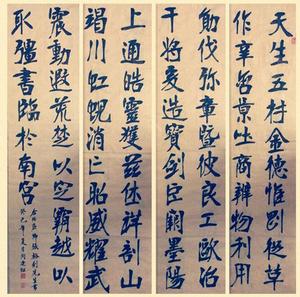 天生五材金惟剛從革
作辛含景吐商辨物利用
勛伐弥章暨彼良工歐冶
干將爰造寶劍巨闕墨陽
上通皓靈獲兹休祥剖山
竭川虹蜺消亡昭威耀武
震動遐荒楚以定霸越以
取彊書臨於南宮
癸巳年夏月